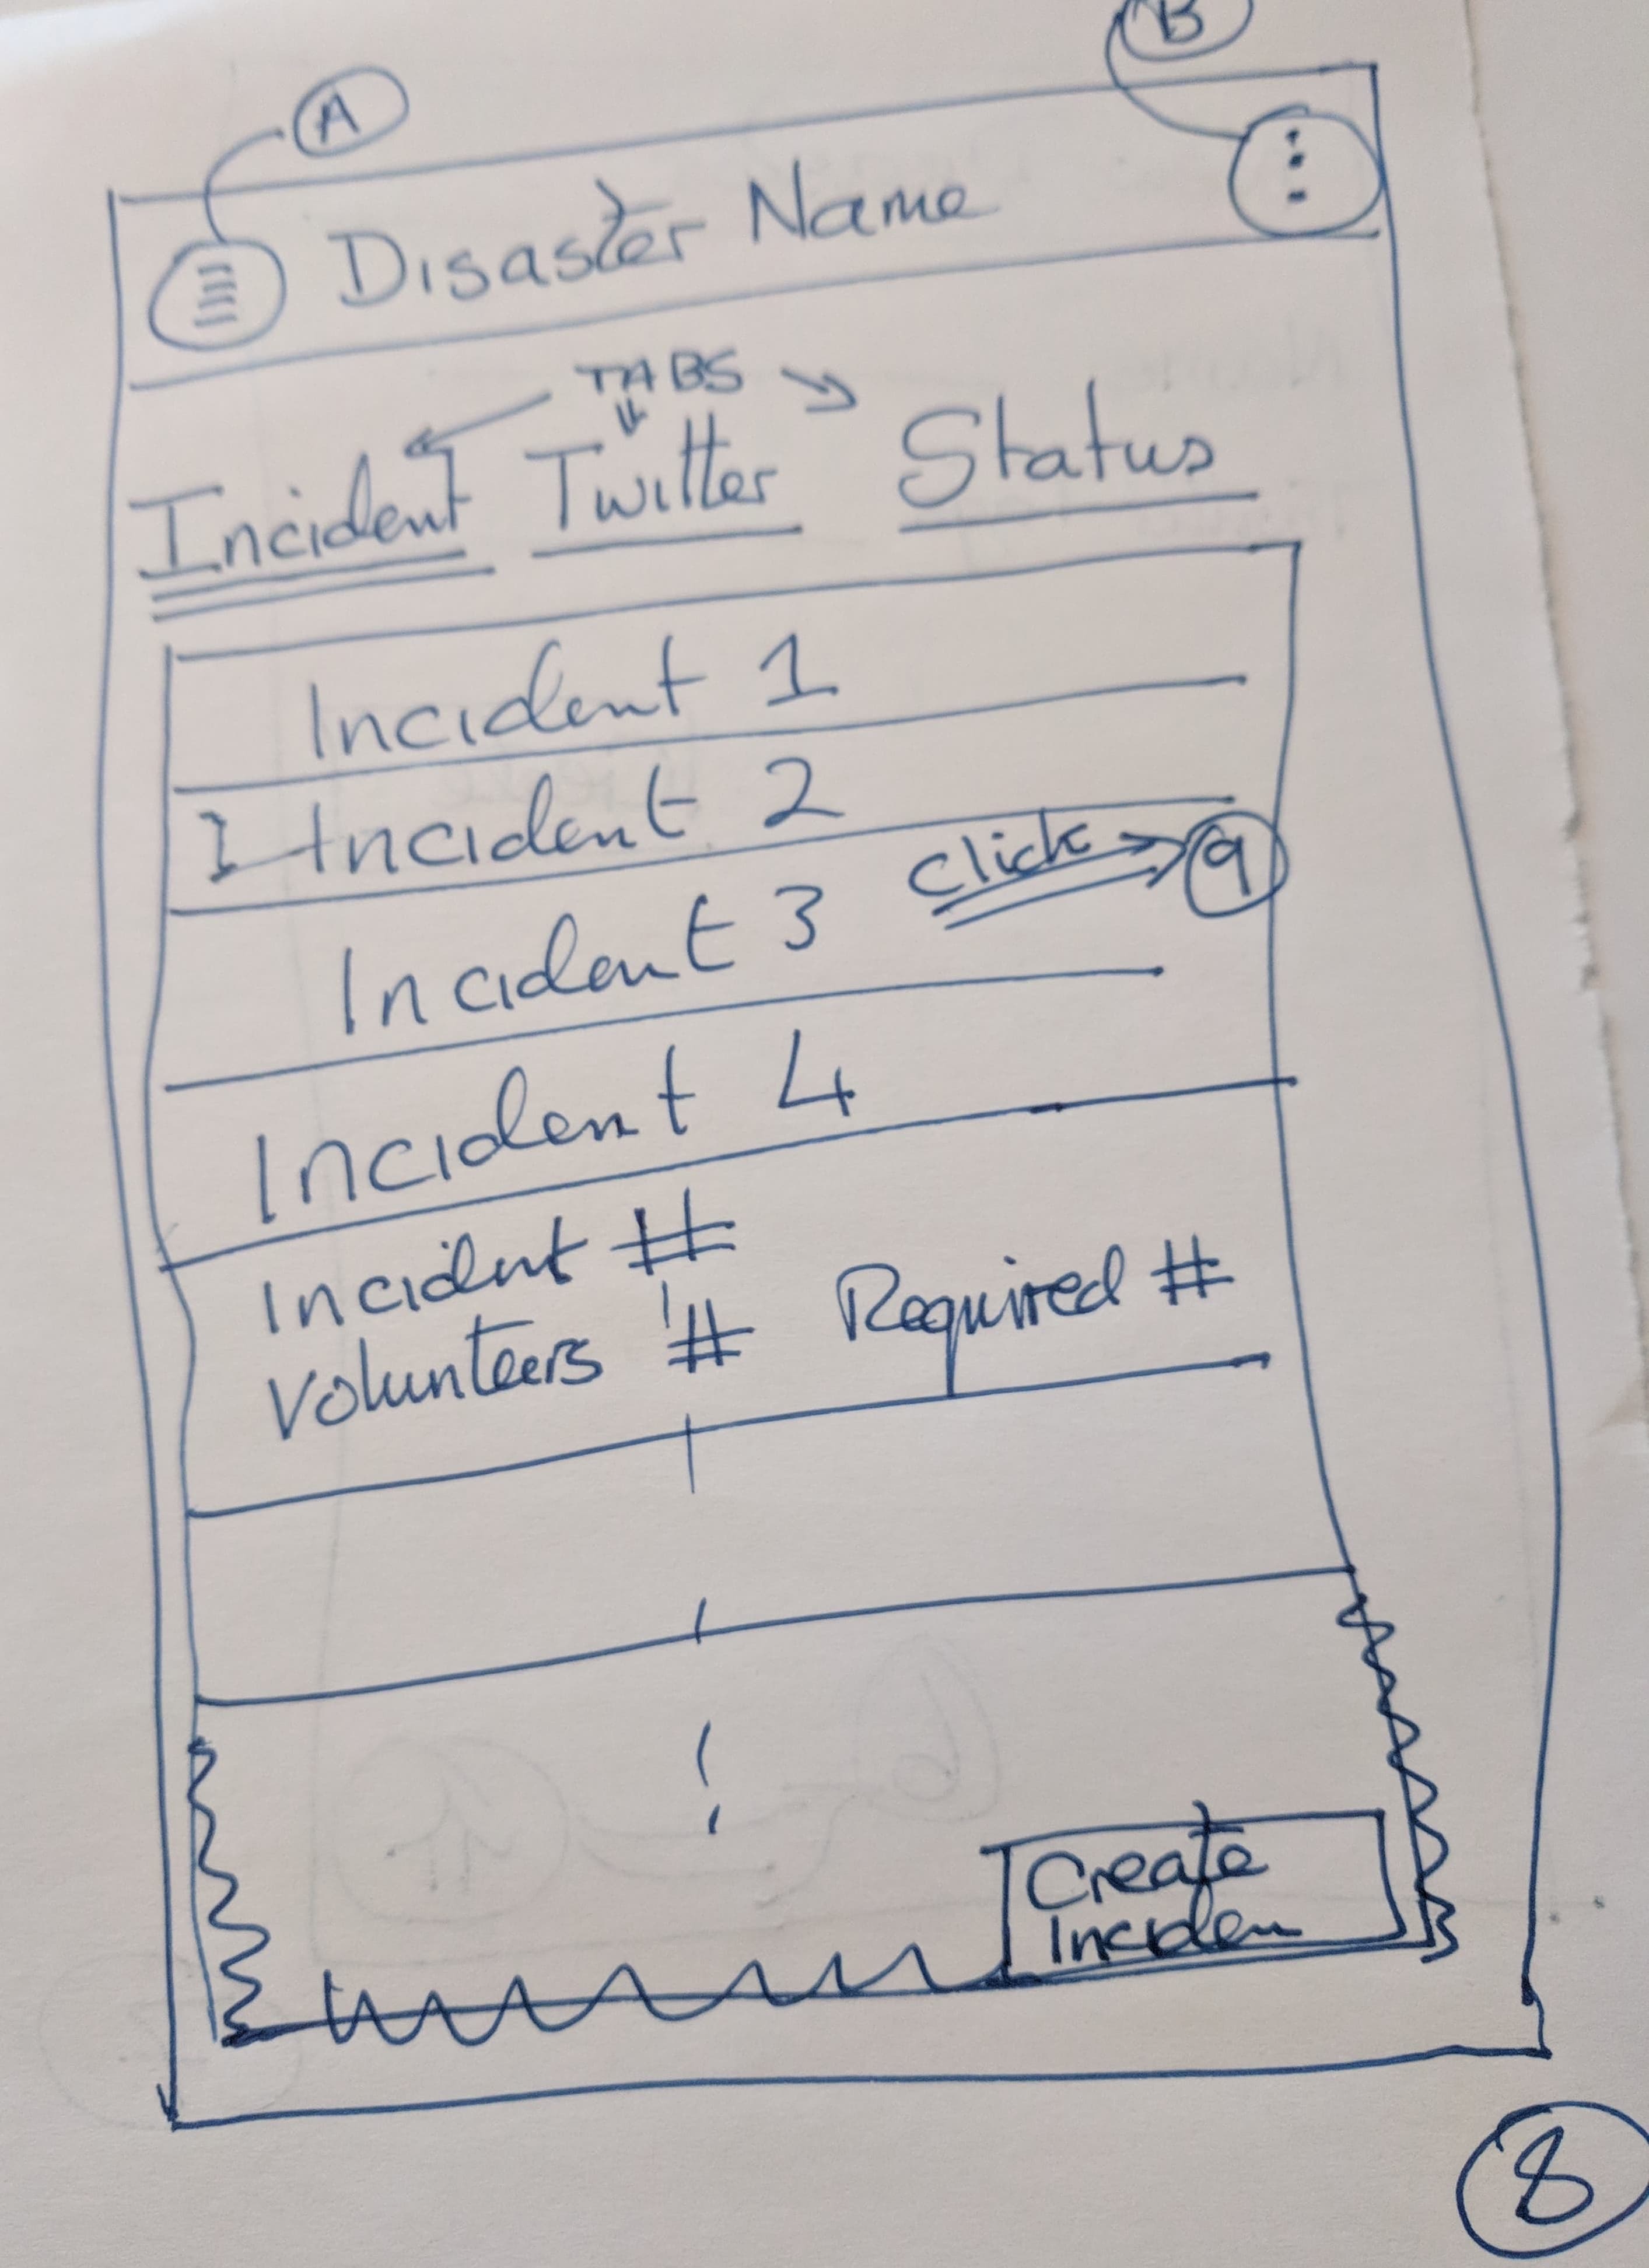 B
A
Disaster Name
TABS
Incident Twitter Status
Incident 1
I Incident 2
click 9
Incident 3
Incident 4
Incident #
Volunteers # Required #
Create
Inciden
8